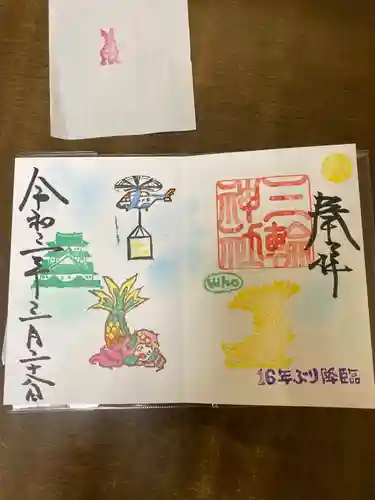 奉拝
三輪
神社
16年ぶり降臨
令和三年三月二十八日